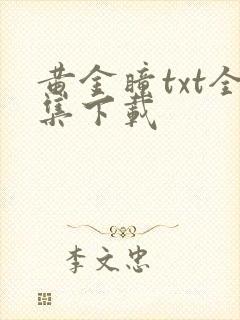 黄金瞳txt全
集下载
李文忠